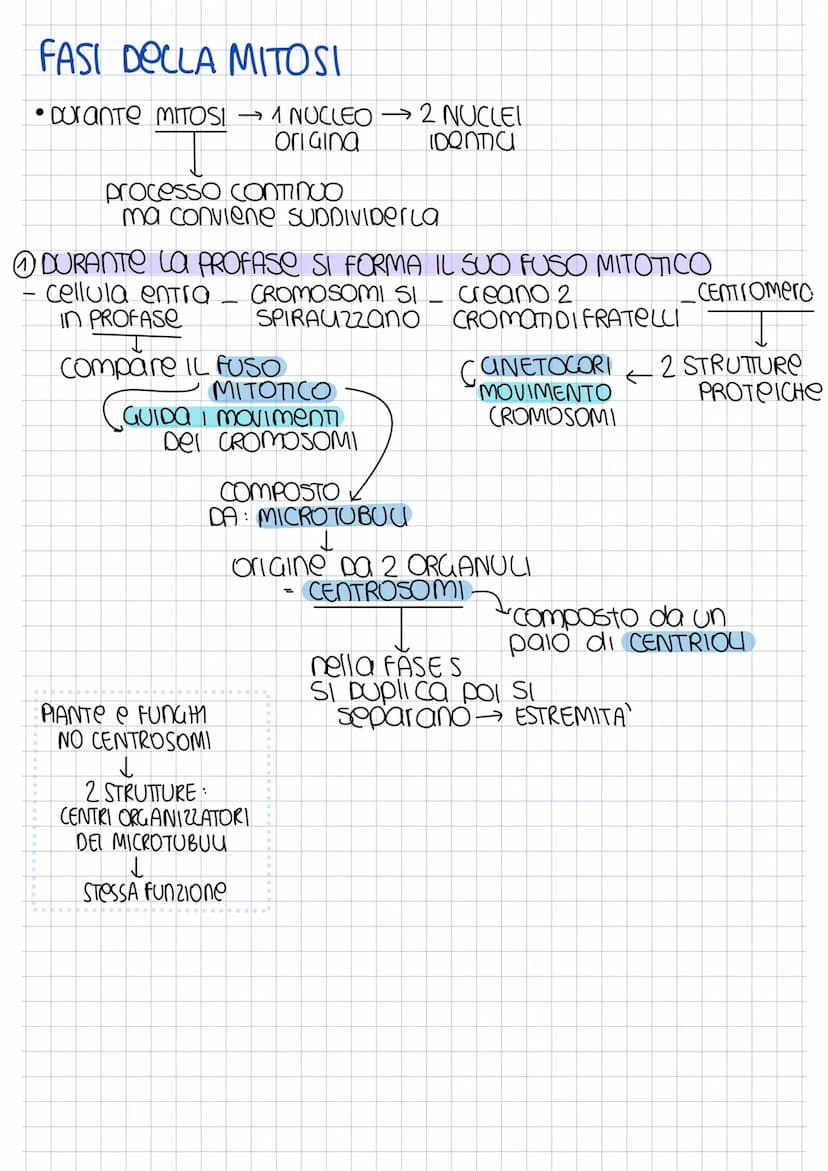 FASI DELLA MITOSI
• Durante MITOSI → 1 NUCLEO → 2 NUCLEI
origina IDENTICI
processo continuo
ma conviene suddividerla
① DURANTE LA PROFASE SI FORMA IL SUO FUSO MITOTICO
- cellula entra - CROMOSOMI SI - creano 2 - CENTROMERO
in PROFASE SPIRALIZZANO CROMATIDI FRATELLI
compare IL FUSO CINETOCORI ← 2 STRUTTURE
MITOTICO MOVIMENTO PROTEICHE
GUIDA I MOVIMENTI CROMOSOMI
DEI CROMOSOMI
COMPOSTO
DA: MICROTUBULI
↓
origine DA 2 ORGANULI
= CENTROSOMI
composto da un
paio di CENTRIOLI
nella FASE S
SI DUPLICA POI SI
separano → ESTREMITA'
PIANTE e FUNGHI
NO CENTROSOMI
↓
2 STRUTTURE:
CENTRI ORGANIZZATORI
DEI MICROTUBULI
↓
STESSA FUNZIONE